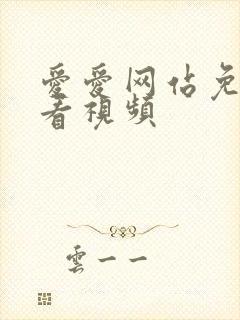 愛愛网佔免
看視頻
雲一一